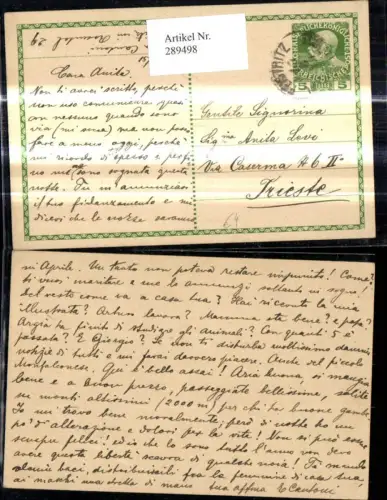 Artikel Nr.
289498
Cara Anita.
Non ti avrei scritto, perchè
non uso comunicare quasi
con nessuno quando sono
via (mi scusi) ma non posso
fare a meno oggi, pechè
mi ricordo di spesso e
me sono sognata questa
notte. Tu mi annunziavi
il tuo fidanzamento e mi
dicevi che le nozze saranno
Gentile Signorina
Sig.na Anita Levi
Via Caserma No 6 II
Trieste
64
in Aprile. Un tanto non poteva restare impunito! Come?
ti vuoi maritare e me lo annunzi soltanto in sogno!
del resto come va a casa tua? Hai ricevuto la mia
illustrata? Arturo lavora? Mamma sta bene? e papà?
Argia ha finito di studiare gli animali? Con quanti
passata? E Giorgio? Se non ti disturba moltissimo dammi
notizie di tutti e mi farai davvero piacere. Anche del piccolo
Monfalconese. Qui è bello assai! Aria buona, si mangia
bene e a buon prezzo, passeggiate bellissime, salite
su monti altissimi (2000 m) per chi ha buone gambe.
Io mi trovo bene moralmente; però di notte ho un
po' di alterazione e dolori per la vita! Non si può essere
sempre felici! ed io che lo sono tutto l'anno non devo
avere questa libertà scevra di qualche noia! Ti mando
baci, distribuiscili fra la femmine di casa tua
ai maschi una stretta di mano tua affma